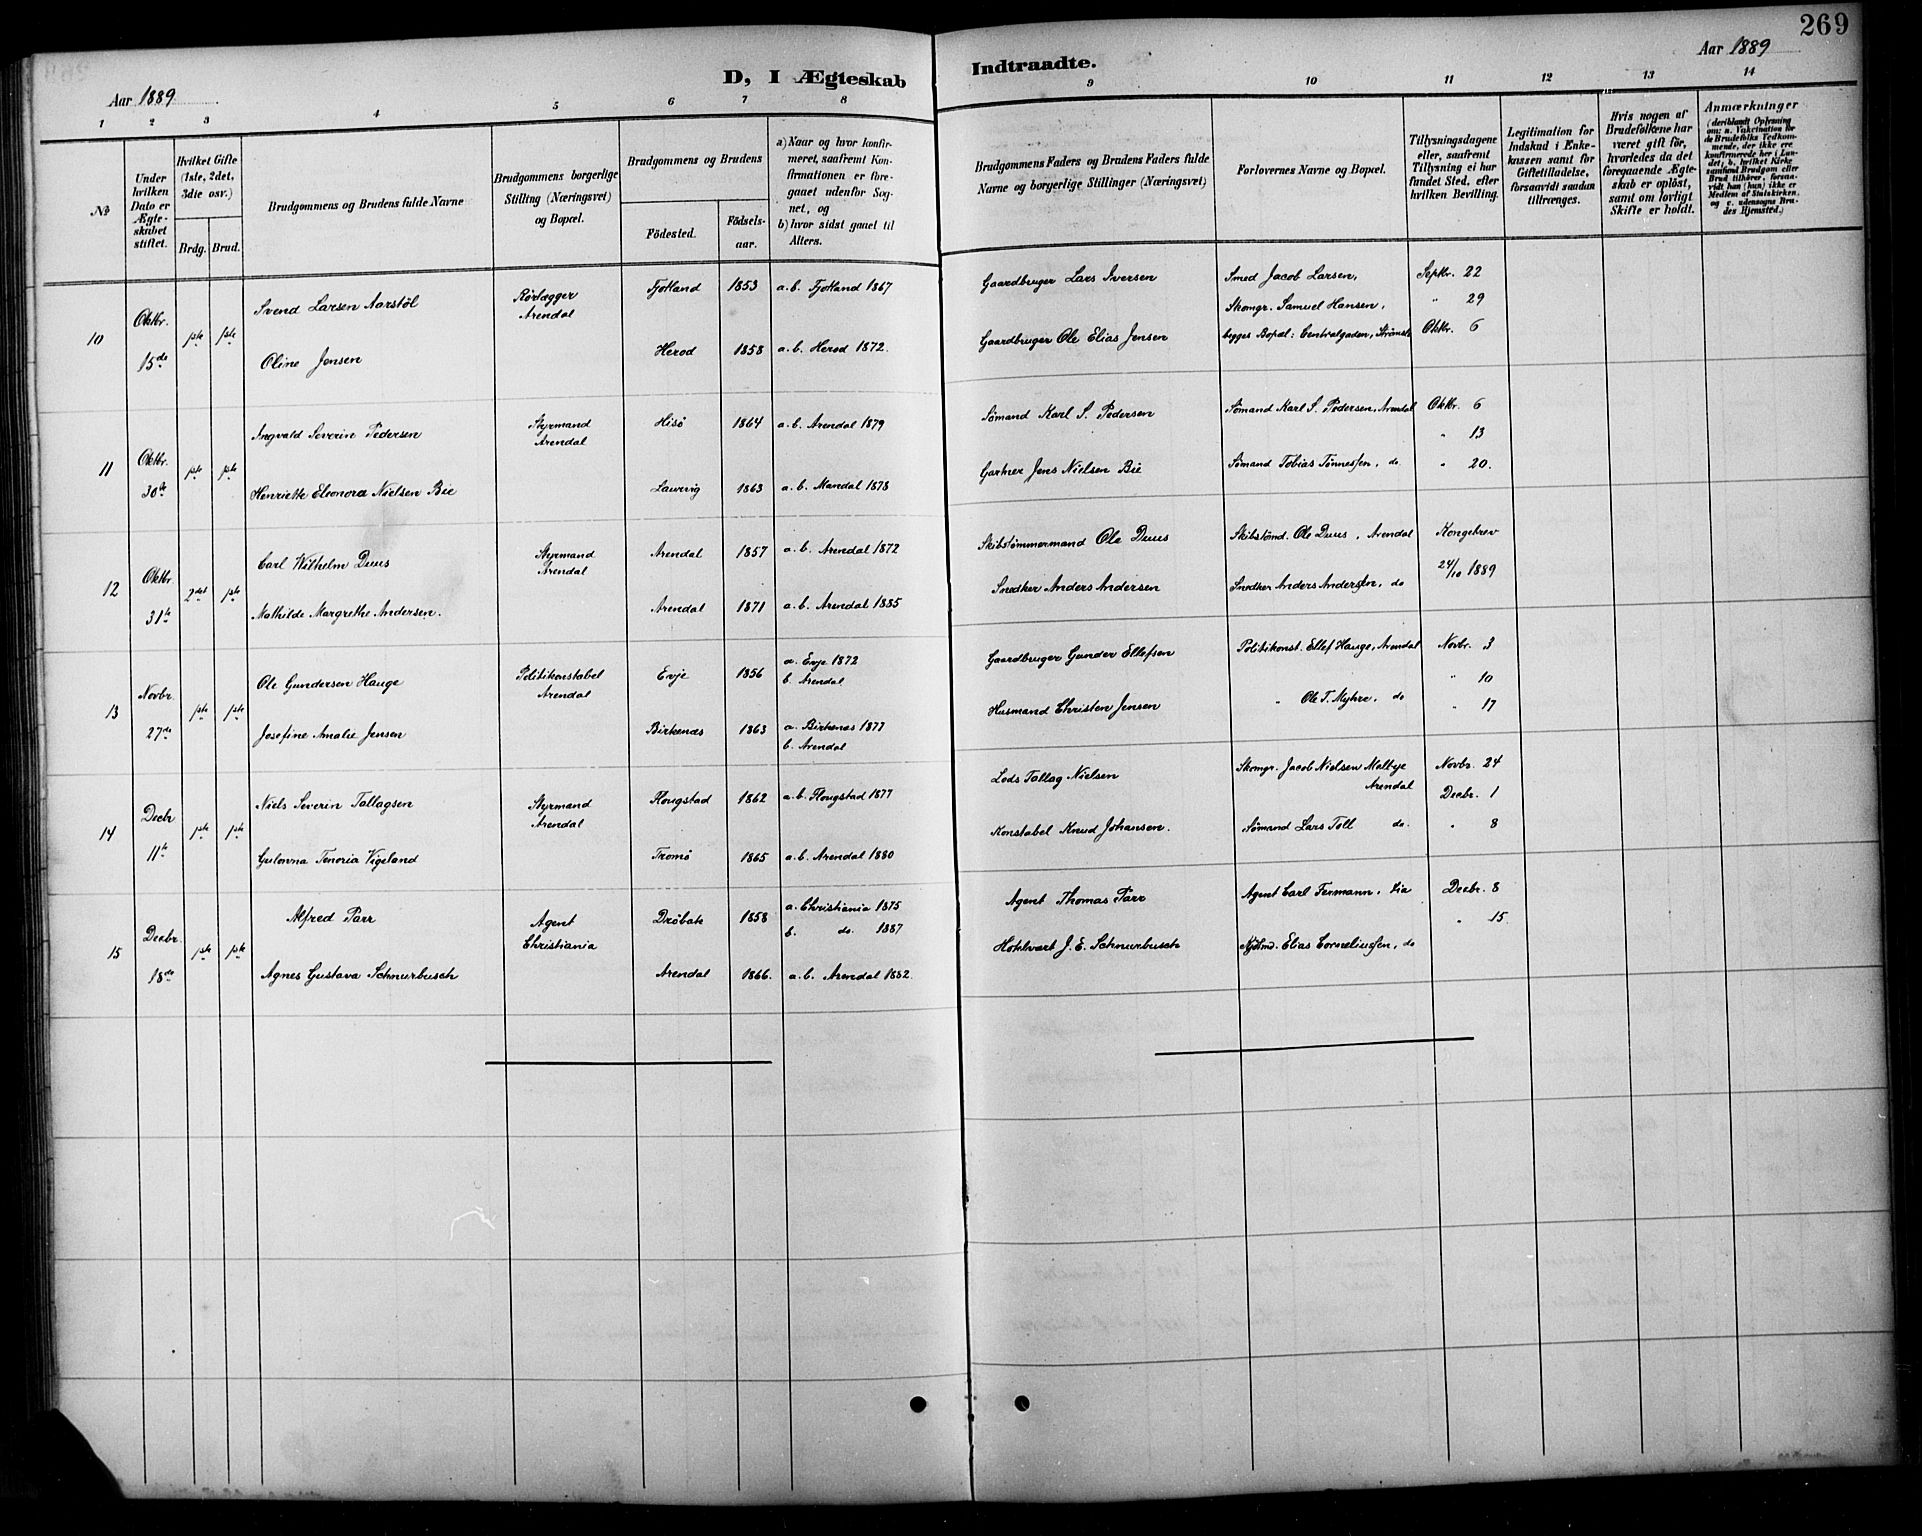 269
Aar 1889
D, I Ægteskab
Indtraadte.
Aar 1889
1 2 3 4 5 6 7 8
9 10 11 12 13 14
No
Under hvilken Dato er Ægteskabet stiftet.
Hvilket Gifte (1ste, 2det, 3die osv.)
Brdg. Brud.
Brudgommens og Brudens fulde Navne
Brudgommens borgerlige Stilling (Næringsvei) og Bopæl.
Brudgommens og Brudens
Födested.
Födsels-aar.
a) Naar og hvor konfirmeret, saafremt Konfirmationen er foregaaet udenfor Sognet, og
b) hvor sidst gaaet til Alters.
Brudgommens Faders og Brudens Faders fulde Navne og borgerlige Stillinger (Næringsvei)
Forlovernes Navne og Bopæl.
Tillysningsdagene eller, saafremt Tillysning ei har fundet Sted, efter hvilken Bevilling.
Legitimation for Indskud i Enkekassen samt for Giftetilladelse, forsaavidt saadan tiltrænges.
Hvis nogen af Brudefolkene har været gift för, hvorledes da det foregaaende Ægteskab er oplöst, samt om lovligt Skifte er holdt.
Anmærkninger
(deriblandt Oplysning om: a. Vakcination for de Brudefolks Vedkommende, der ikke ere konfirmerede her i Landet; b. hvilket Kirkesamfund Brudgom eller Brud tilhörer, forsaavidt han (hun) ikke er Medlem af Statskirken, og c. udensogns Brudes Hjemsted.)
10 Oktbr. 15de 1ste 1ste
Svend Larsen Aarstöl Rörlægger Arendal Fjotland 1853 a. b. Fjotland 1867 Gaardbruger Lars Iversen Smed Jacob Larsen, Septbr. 22
Skomgr. Samuel Hansen, " 29
Oline Jensen Herod 1858 a. b. Herod 1872. Gaardbruger Ole Elias Jensen begges Bopæl: Centralgaden, Strömsb Oktbr. 6
11 Oktbr. 30te 1ste 1ste
Ingvald Severin Pedersen Styrmand Arendal Hisö 1864 a. b. Arendal 1879 Sømand Karl S. Pedersen Sømand Karl S. Pedersen, Arendal Oktbr. 6
" 13
Henriette Eleonora Nielsen Bie Laurvig 1863 a. b. Mandal 1878 Gartner Jens Nielsen Bie Sømand Tobias Tönnessen, do " 20.
12 Oktbr. 31te 2det 1ste
Carl Wilhelm Duus Styrmand Arendal Arendal 1857 a. b. Arendal 1872 Skibstömmermand Ole Duus Skibstömd. Ole Duus, Arendal Kongebrev
24/10 1889
Mathilde Margrethe Andersen. Arendal 1871 a. b. Arendal 1885 Snedker Anders Andersen Snedker Anders Andersen, do
13 Novbr. 27de 1ste 1ste
Ole Gundersen Hauge Politikonstabel Arendal Evje 1856 a. Evje 1872 b. Arendal Gaardbruger Gunder Ellefsen Politikonst. Ellef Hauge, Arendal Novbr. 3
" 10
Josefine Amalie Jensen Birkenæs 1863 a. Birkenæs 1877 b. Arendal Husmand Christen Jensen " Ole T. Myhre, do " 17
14 Decbr 11te 1ste 1ste
Niels Severin Tallagsen Styrmand Arendal Flougstad 1862 a. b. Flougstad 1877 Lods Tallag Nielsen Skomgr. Jacob Nielsen Maltye Arendal Novbr. 24
Decbr. 1
Gulovna Tenoria Vigeland Tromö 1865 a. b. Arendal 1880 Konstabel Knud Johansen. Sømand Lars Toll do. " 8
15 Decbr. 18de 1ste 1ste
Alfred Parr Agent Christiania Dröbak 1858 a. Christiania 1875 b. do. 1887 Agent Thomas Parr Agent Carl Fermann, Xia Decbr. 8
" 15
Agnes Gustava Schnurbusch Arendal 1866. a. b. Arendal 1882. Hotelvært J. E. Schnurbusch Kjöbmd. Elias Corneliussen, do